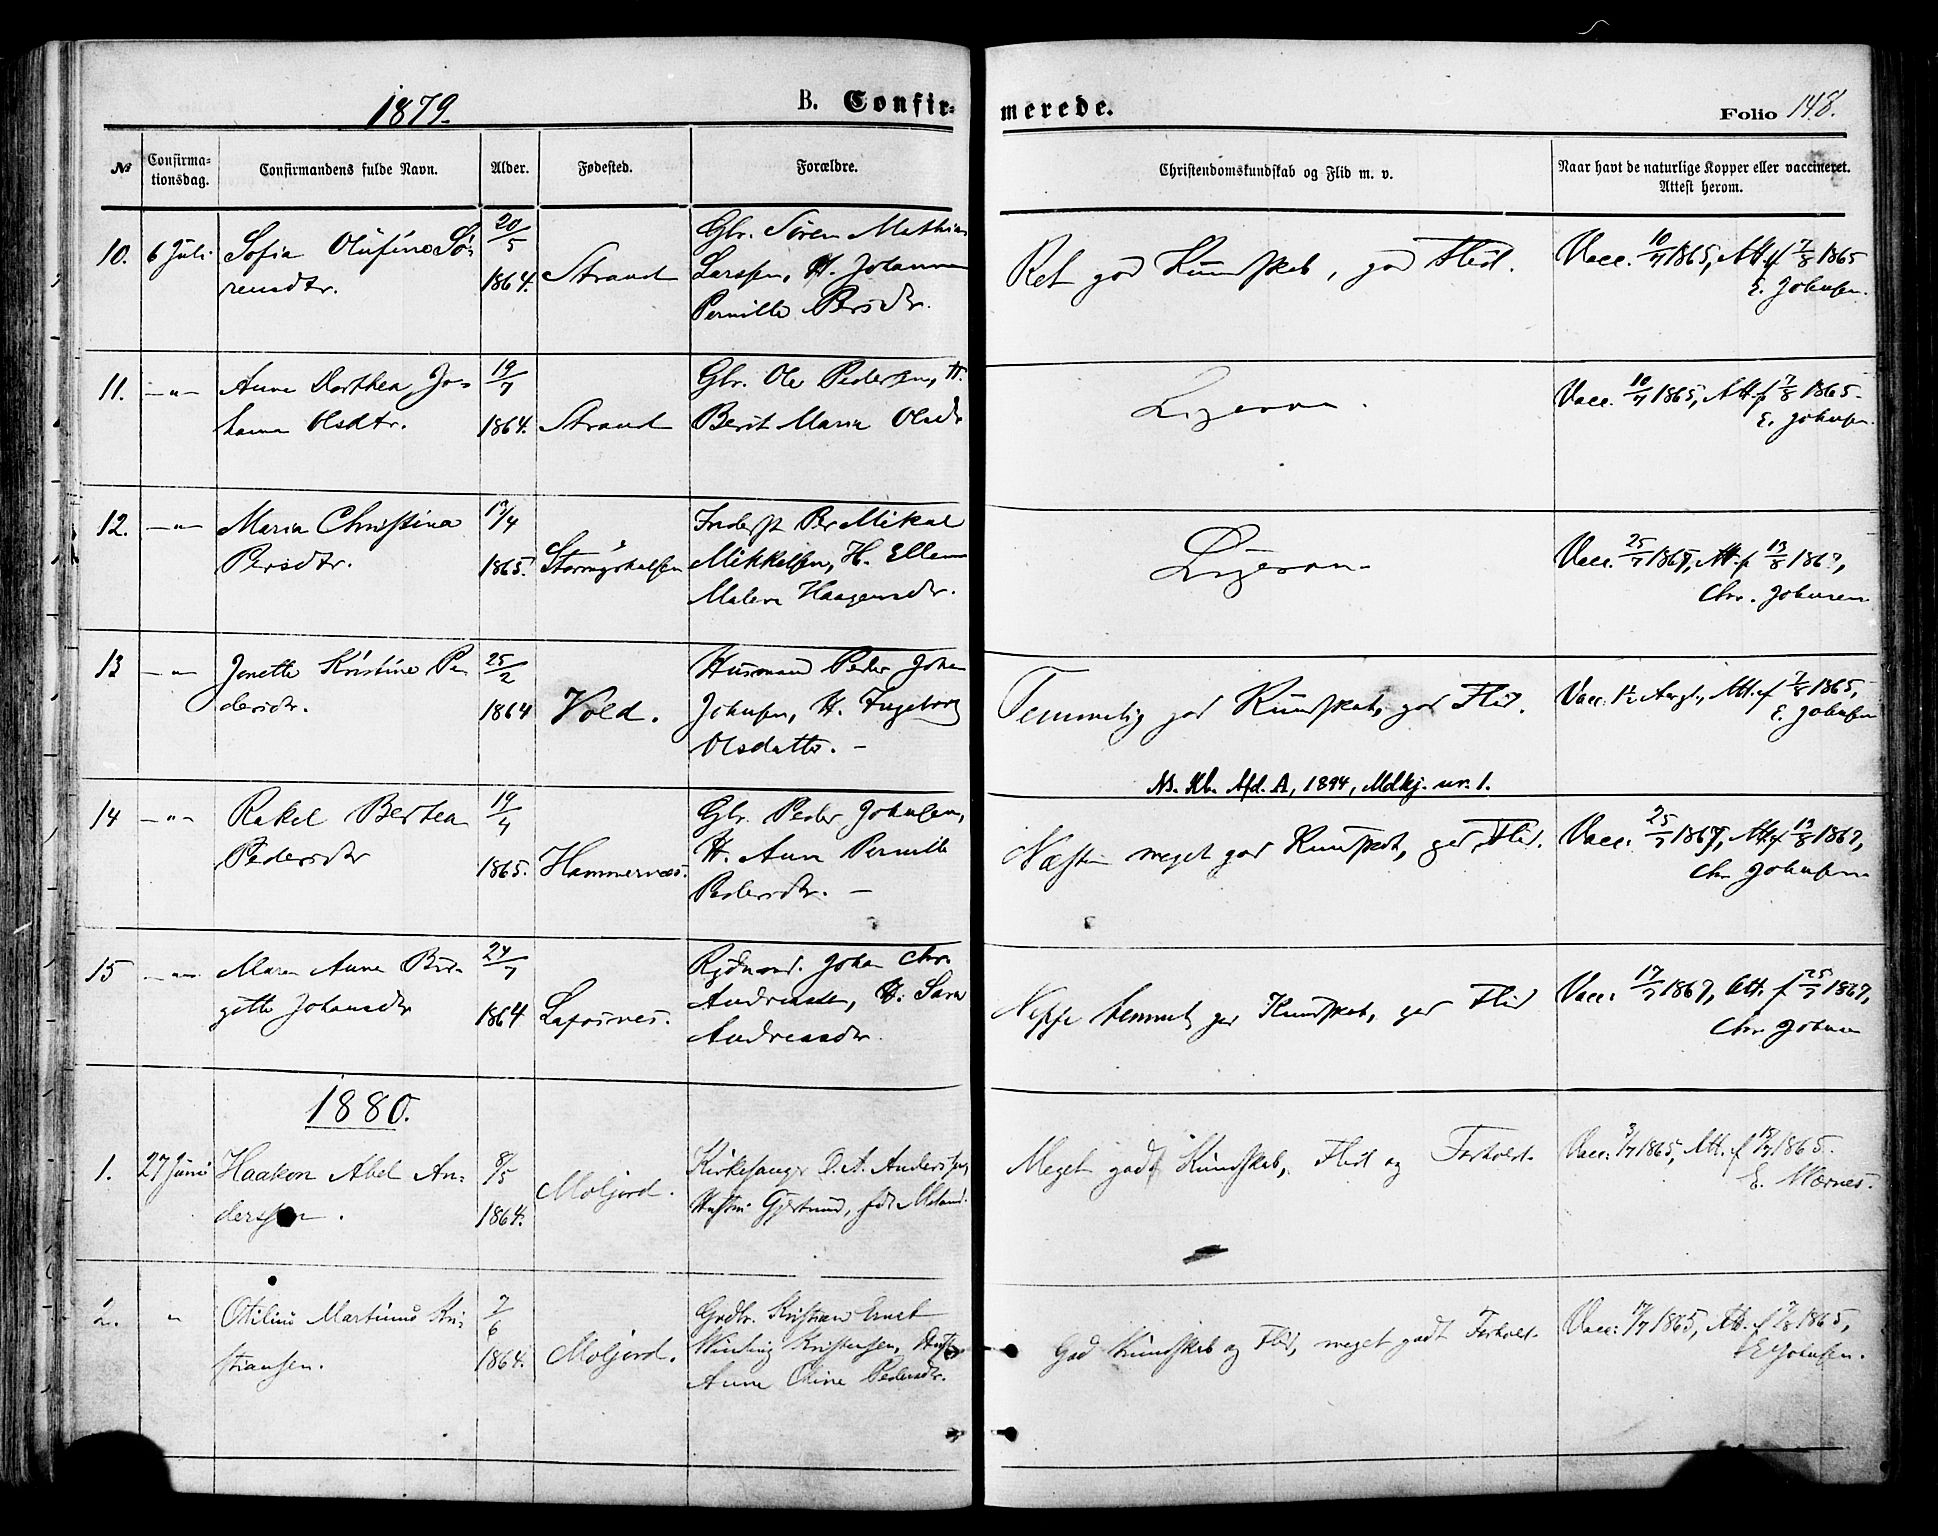 1879.
B. Confir-
merede.
Folio 148.
№
Confirma-
tionsdag.
Confirmandens fulde Navn.
Alder.
Fødested.
Forældre.
Christendomskundskab og Flid m. v.
Naar havt de naturlige Kopper eller vaccineret.
Attest herom.
10. 6 Juli Sofia Olufine Sö-
rensdtr.
20/5
1864.
Strand
Gbr. Sören Mathias
Larssen, H. Johanna
Pernille Persdtr.
Ret god Kundskab, god Flid.
Vacc. 10/7 1865, Att. f 7/8 1865
E. Johnsen.
11. —"— Anne Dorthea Jo-
hanna Olsdtr.
19/7
1864.
Strand
Gbr. Ole Pedersen, H.
Berit Maria Olsdtr
Ligesaa.
Vacc. 10/7 1865, Att. f 7/8 1865.
E. Johnsen.
12. —"— Maria Christina
Persdtr.
17/4
1865.
Inderst Per Mikal
Mikkelsen, H. Ellen
Malene Haagensdtr.
Ligesaa.
Vacc. 25/7 1867, Att. f 13/8 1867,
Chr. Johnsen
13 —"— Jonette Kristine Pe-
dersdtr.
25/2
1864
Vold.
Husmand Peder Johan
Johnsen, H. Ingeborg
Olsdatter. —
Temmelig god Kundskab, god Flid.
Vacc. Att. f 7/8 1865,
E. Johnsen
Ns. Kb. Afd. A, 1894, Mdkj. nr. 1.
14 —"— Rakel Berthea
Pedersdtr
19/4
1865.
Hammernæs.
Gbr. Peder Johnsen,
H. Anne Pernille
Pedersdtr. —
Næsten meget god Kundskab, god Flid.
Vacc. 25/7 1867, Att. f 13/8 1867,
Chr Johnsen
15 —"— Maren Anna Bir-
gitte Johansdtr
24/7
1864
Johan Chr.
Andreassen, H. Sara
Andreasdtr.
Neppe temmel. god Kundskab, god Flid
Vacc. 17/7 1867, Att. f 25/7 1867,
Chr Johnsen
1880.
1. 27 Juni Haakon Abel An-
derssen.
8/5
1864.
Moljord.
Kirkesanger O. A. Anderssen,
Hustru Gjertrud, f.
Meget god Kundskab, Flid og Forhold.
Vacc. 3/7 1865, Att. f 18/7 1865.
E. Mærnes.
2. " Otilius Martinus Kri-
stiansen.
7/6
1864.
Moljord.
Gaardbr. Kristian Ernst
Winding Kristensen, Hustru
Anne Oline Pedersdtr.
God Kundskab og Flid, meget godt Forhold.
Vacc. 1865, Att. f 7/8 1865,
E Johnsen.